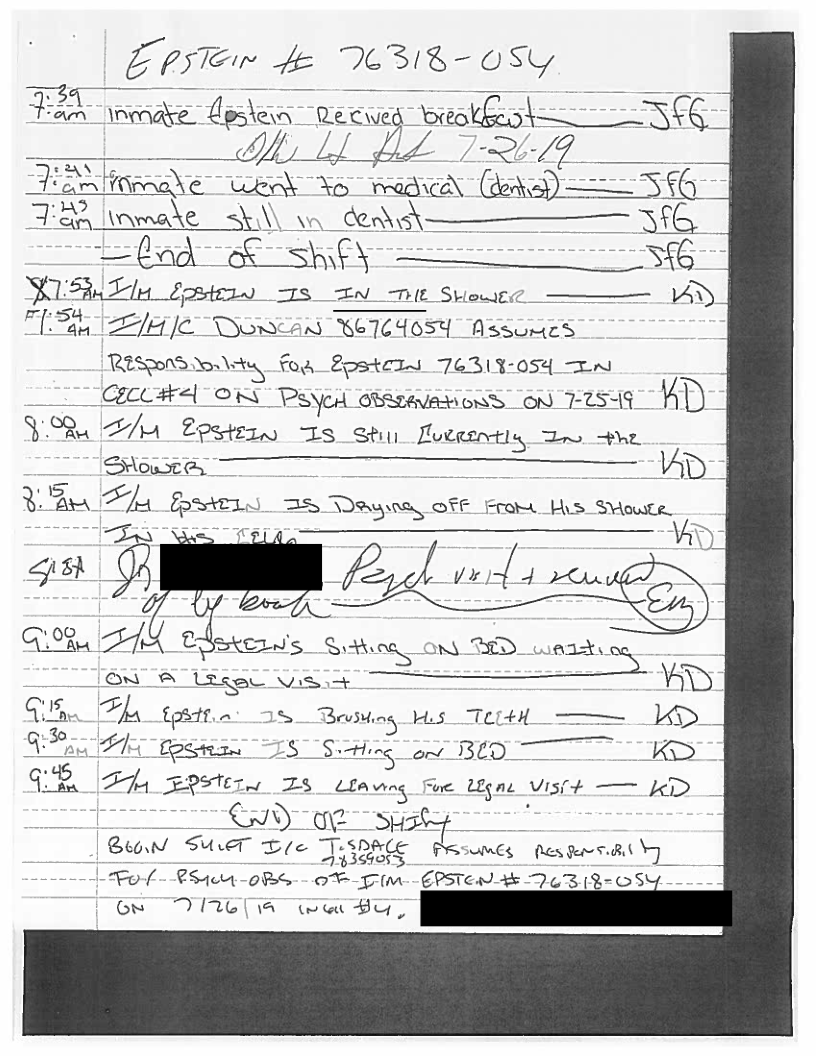 EPSTEIN # 76318-054
7:39 am inmate Epstein Recived breakfast JfG
7-26-19
7:41 am inmate went to medical (dentist) JfG
7:43 am inmate still in dentist JfG
— End of shift JfG
7:53 AM I/M EPSTEIN IS IN THE SHOWER KD
7:54 AM I/M/C DUNCAN 86764054 ASSUMES
RESponsibility FOR EpstEIN 76318-054 IN
CELL #4 ON PSYCH OBSERVATIONS ON 7-25-19 KD
8:00 AM I/M EPSTEIN IS Still CURRENtly IN the
SHOWER KD
8:15 AM I/M EpstEIN IS Drying OFF FROM HIS SHOWER
IN HIS CELL KD
Psych visit +
9:00 AM I/M EPSTEIN'S Sitting ON BED WAITing
ON A LEGAL VISIT KD
9:15 AM I/M EpstEin IS Brushing HIS TEEtH KD
9:30 AM I/M EPSTEIN IS Sitting ON BED KD
9:45 AM I/M EPSTEIN IS LEAVing FOR LEGAL VISIt KD
END OF SHIft
BEGIN SHIFT I/C T. SDACE ASSUMES RESPONSIBILITY
78359053
FOR PSYCH OBS OF I/M EPSTEIN # 76318-054
ON 7/26/19 IN Cell #4.